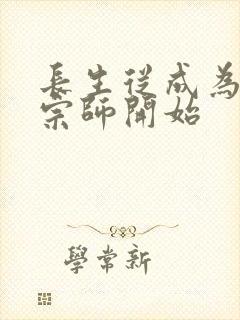 長生從成為
宗師開始
學常新